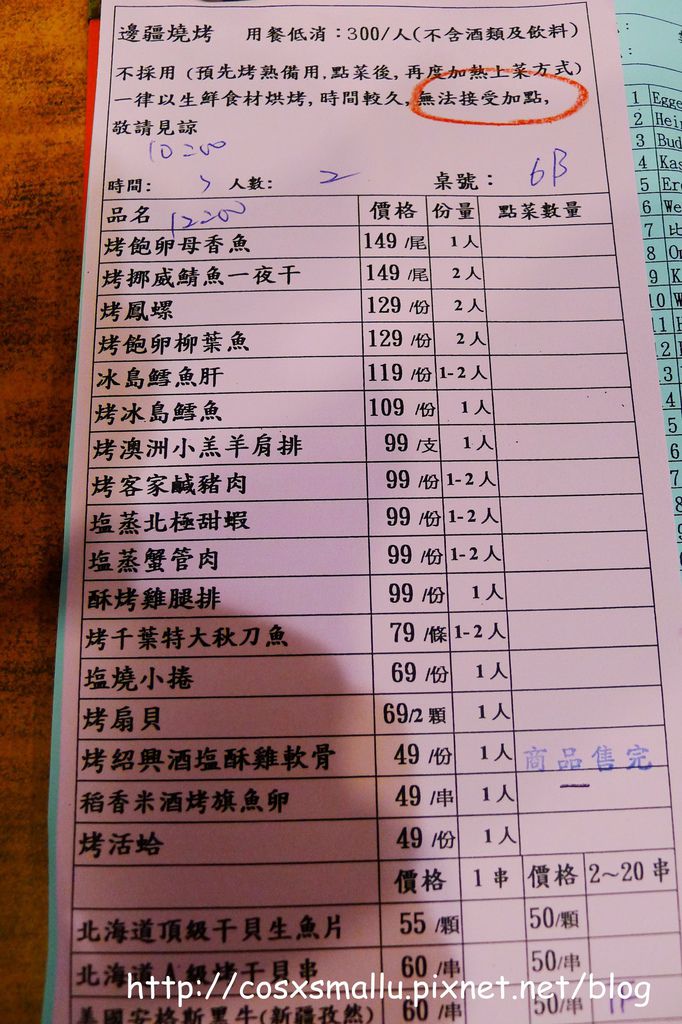 邊疆燒烤 用餐低消：300/人(不含酒類及飲料)
不採用 (預先烤熟備用,點菜後,再度加熱上菜方式)
一律以生鮮食材烘烤,時間較久,無法接受加點,
敬請見諒
10:00
時間： 人數： 2 桌號： 6B
12:00
品名 價格 份量 點菜數量
烤飽卵母香魚 149 /尾 1人
烤挪威鯖魚一夜干 149 /尾 2人
烤鳳螺 129 /份 2人
烤飽卵柳葉魚 129 /份 2人
冰島鱈魚肝 119 /份 1-2人
烤冰島鱈魚 109 /份 1人
烤澳洲小羔羊肩排 99 /支 1人
烤客家鹹豬肉 99 /份 1-2人
塩蒸北極甜蝦 99 /份 1-2人
塩蒸蟹管肉 99 /份 1-2人
酥烤雞腿排 99 /份 1人
烤千葉特大秋刀魚 79 /條 1-2人
塩燒小捲 69 /份 1人
烤扇貝 69/2顆 1人
烤紹興酒塩酥雞軟骨 49 /份 1人 商品售完
稻香米酒烤旗魚卵 49 /串 1人
烤活蛤 49 /份 1人
價格 1串 價格 2~20串
北海道頂級干貝生魚片 55 /顆 50/顆
北海道人級烤干貝串 60 /串 50/串
美國安格斯黑牛(新疆孜然) 60 /串 50/串
1 Egge
2 Hei
3 Bud
4 Kas
5 Er
6 We
7 比
8 O
9 K
http://cosxsmallu.pixnet.net/blog